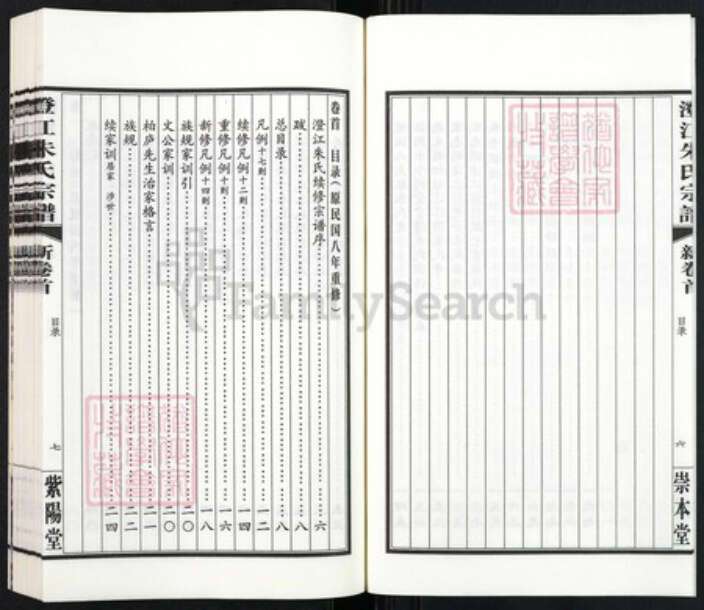 澄江朱氏宗譜
新卷首
目录
六
崇本堂
卷首 目录(原民国八年重修)
澄江朱氏续修宗谱序……六
跋……八
总目录……八
凡例十七则……一二
续修凡例十二则……一四
重修凡例十则……一六
新修凡例十四则……一八
族规家训引……二〇
文公家训……二〇
柏庐先生治家格言……二一
族规……二二
续家训居家 涉世……二四
澄江朱氏宗譜
新卷首
目录
七
紫陽堂
FamilySearch